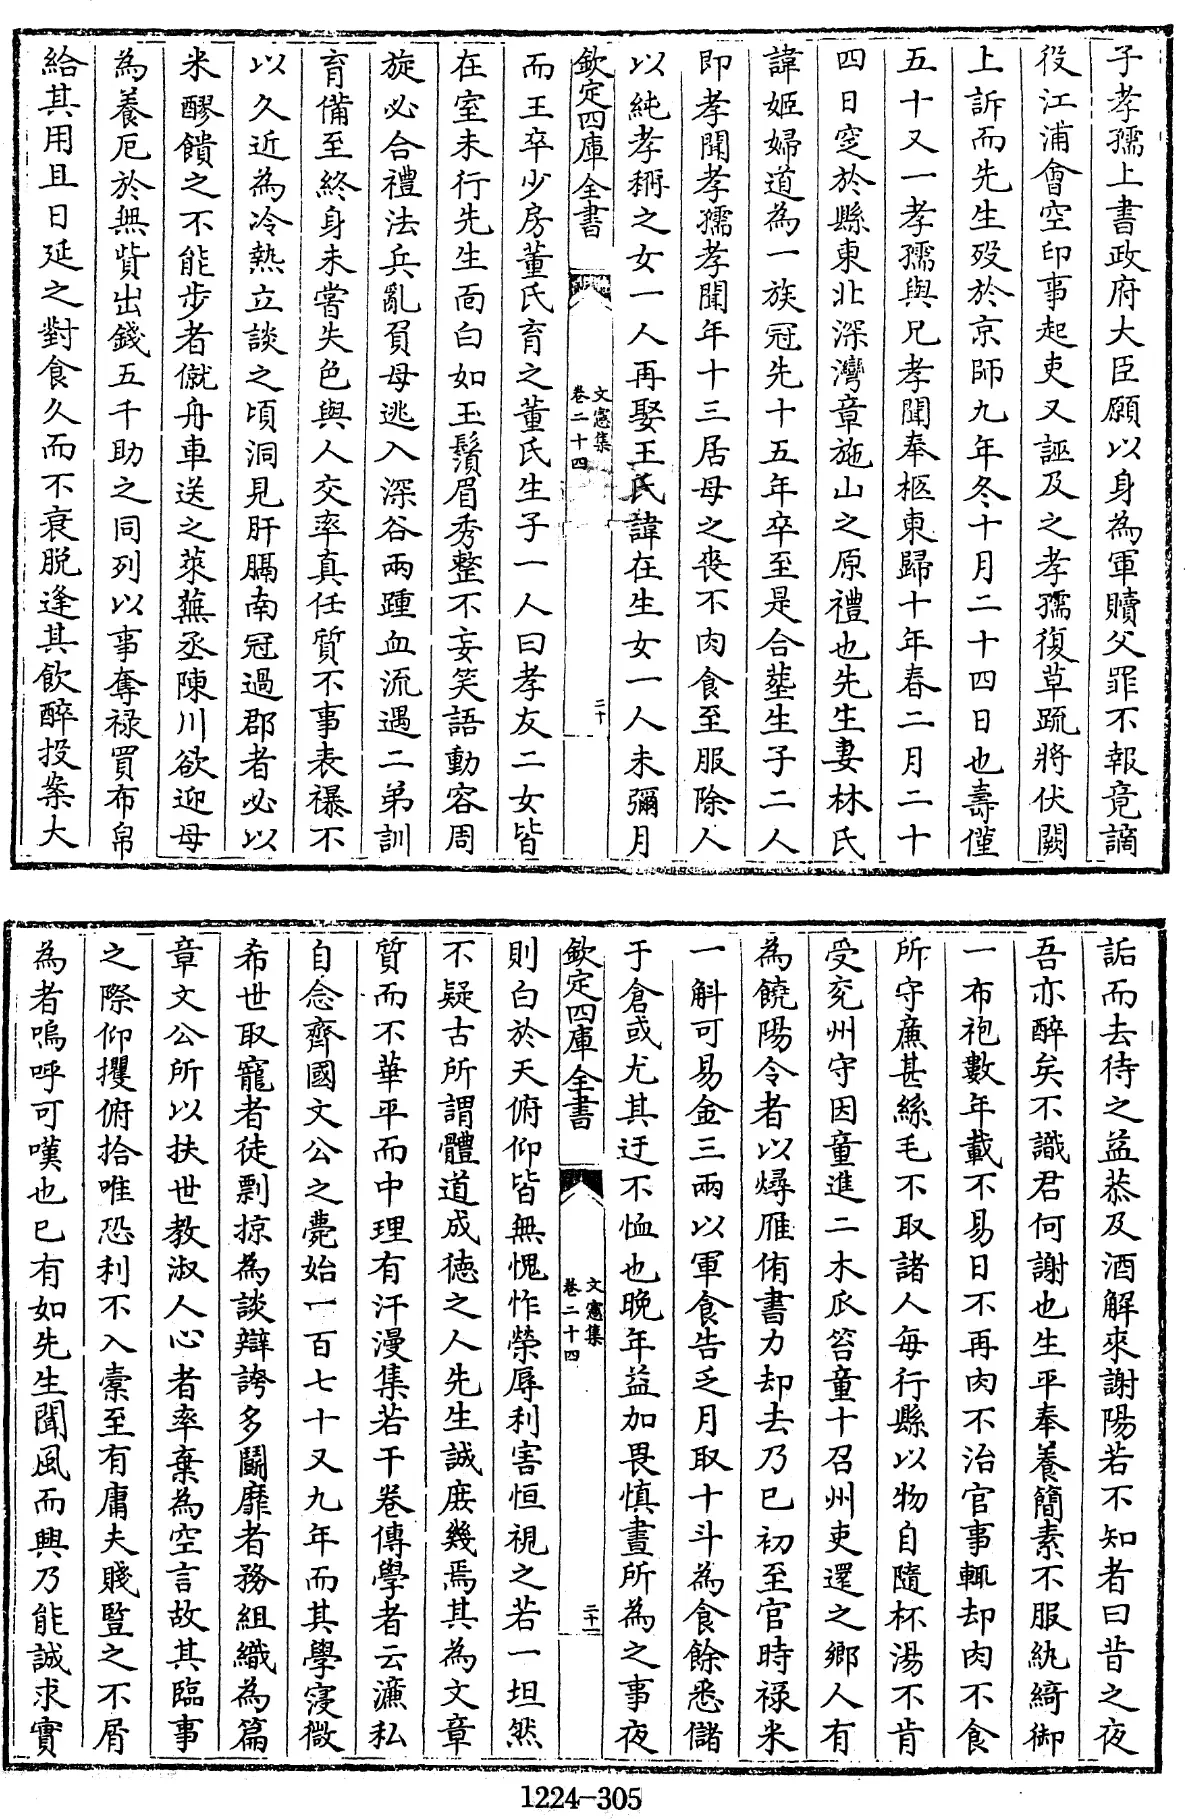 子孝孺上書政府大臣願以身為軍贖父罪不報竟謫
役江浦會空印事起吏又誣及之孝孺復草疏將伏闕
上訴而先生歿於京師九年冬十月二十四日也壽僅
五十又一孝孺與兄孝聞奉柩東歸十年春二月二十
四日窆於縣東北深灣章施山之原禮也先生妻林氏
諱姬婦道為一族冠先十五年卒至是合塟生子二人
即孝聞孝孺孝聞年十三居母之喪不肉食至服除人
以純孝稱之女一人再娶王氏諱在生女一人未彌月
欽定四庫全書
文憲集
卷二十四
二十
而王卒少房董氏育之董氏生子一人曰孝友二女皆
在室未行先生面白如玉鬚眉秀整不妄笑語動容周
旋必合禮法兵亂負母逃入深谷兩踵血流遇二弟訓
育備至終身未嘗失色與人交率真任質不事表襮不
以久近為冷熱立談之頃洞見肝膈南冠過郡者必以
米醪饋之不能步者僦舟車送之萊蕪丞陳川欲迎母
為養厄於無貲出錢五千助之同列以事奪祿買布帛
給其用且日延之對食久而不衰脱逢其飲醉投案大
詬而去待之益恭及酒解來謝陽若不知者曰昔之夜
吾亦醉矣不識君何謝也生平奉養簡素不服紈綺御
一布袍數年載不易日不再肉不治官事輒却肉不食
所守廉甚絲毛不取諸人每行縣以物自隨杯湯不肯
受兖州守因童進二木瓜笞童十召州吏還之鄉人有
為饒陽令者以燖雁侑書力却去乃已初至官時禄米
一斛可易金三兩以軍食告乏月取十斗為食餘悉儲
于倉或尤其迂不恤也晚年益加畏慎晝所為之事夜
欽定四庫全書
文憲集
卷二十四
二十一
則白於天俯仰皆無愧怍榮辱利害恒視之若一坦然
不疑古所謂體道成德之人先生誠庻幾焉其為文章
質而不華平而中理有汗漫集若干卷傳學者云濂私
自念齊國文公之薨始一百七十又九年而其學寖微
希世取寵者徒剽掠為談辯誇多鬭靡者務組織為篇
章文公所以扶世教淑人心者率棄為空言故其臨事
之際仰攫俯拾唯恐利不入橐至有庸夫賤豎之不屑
為者嗚呼可嘆也已有如先生聞風而興乃能誠求實
1224-305